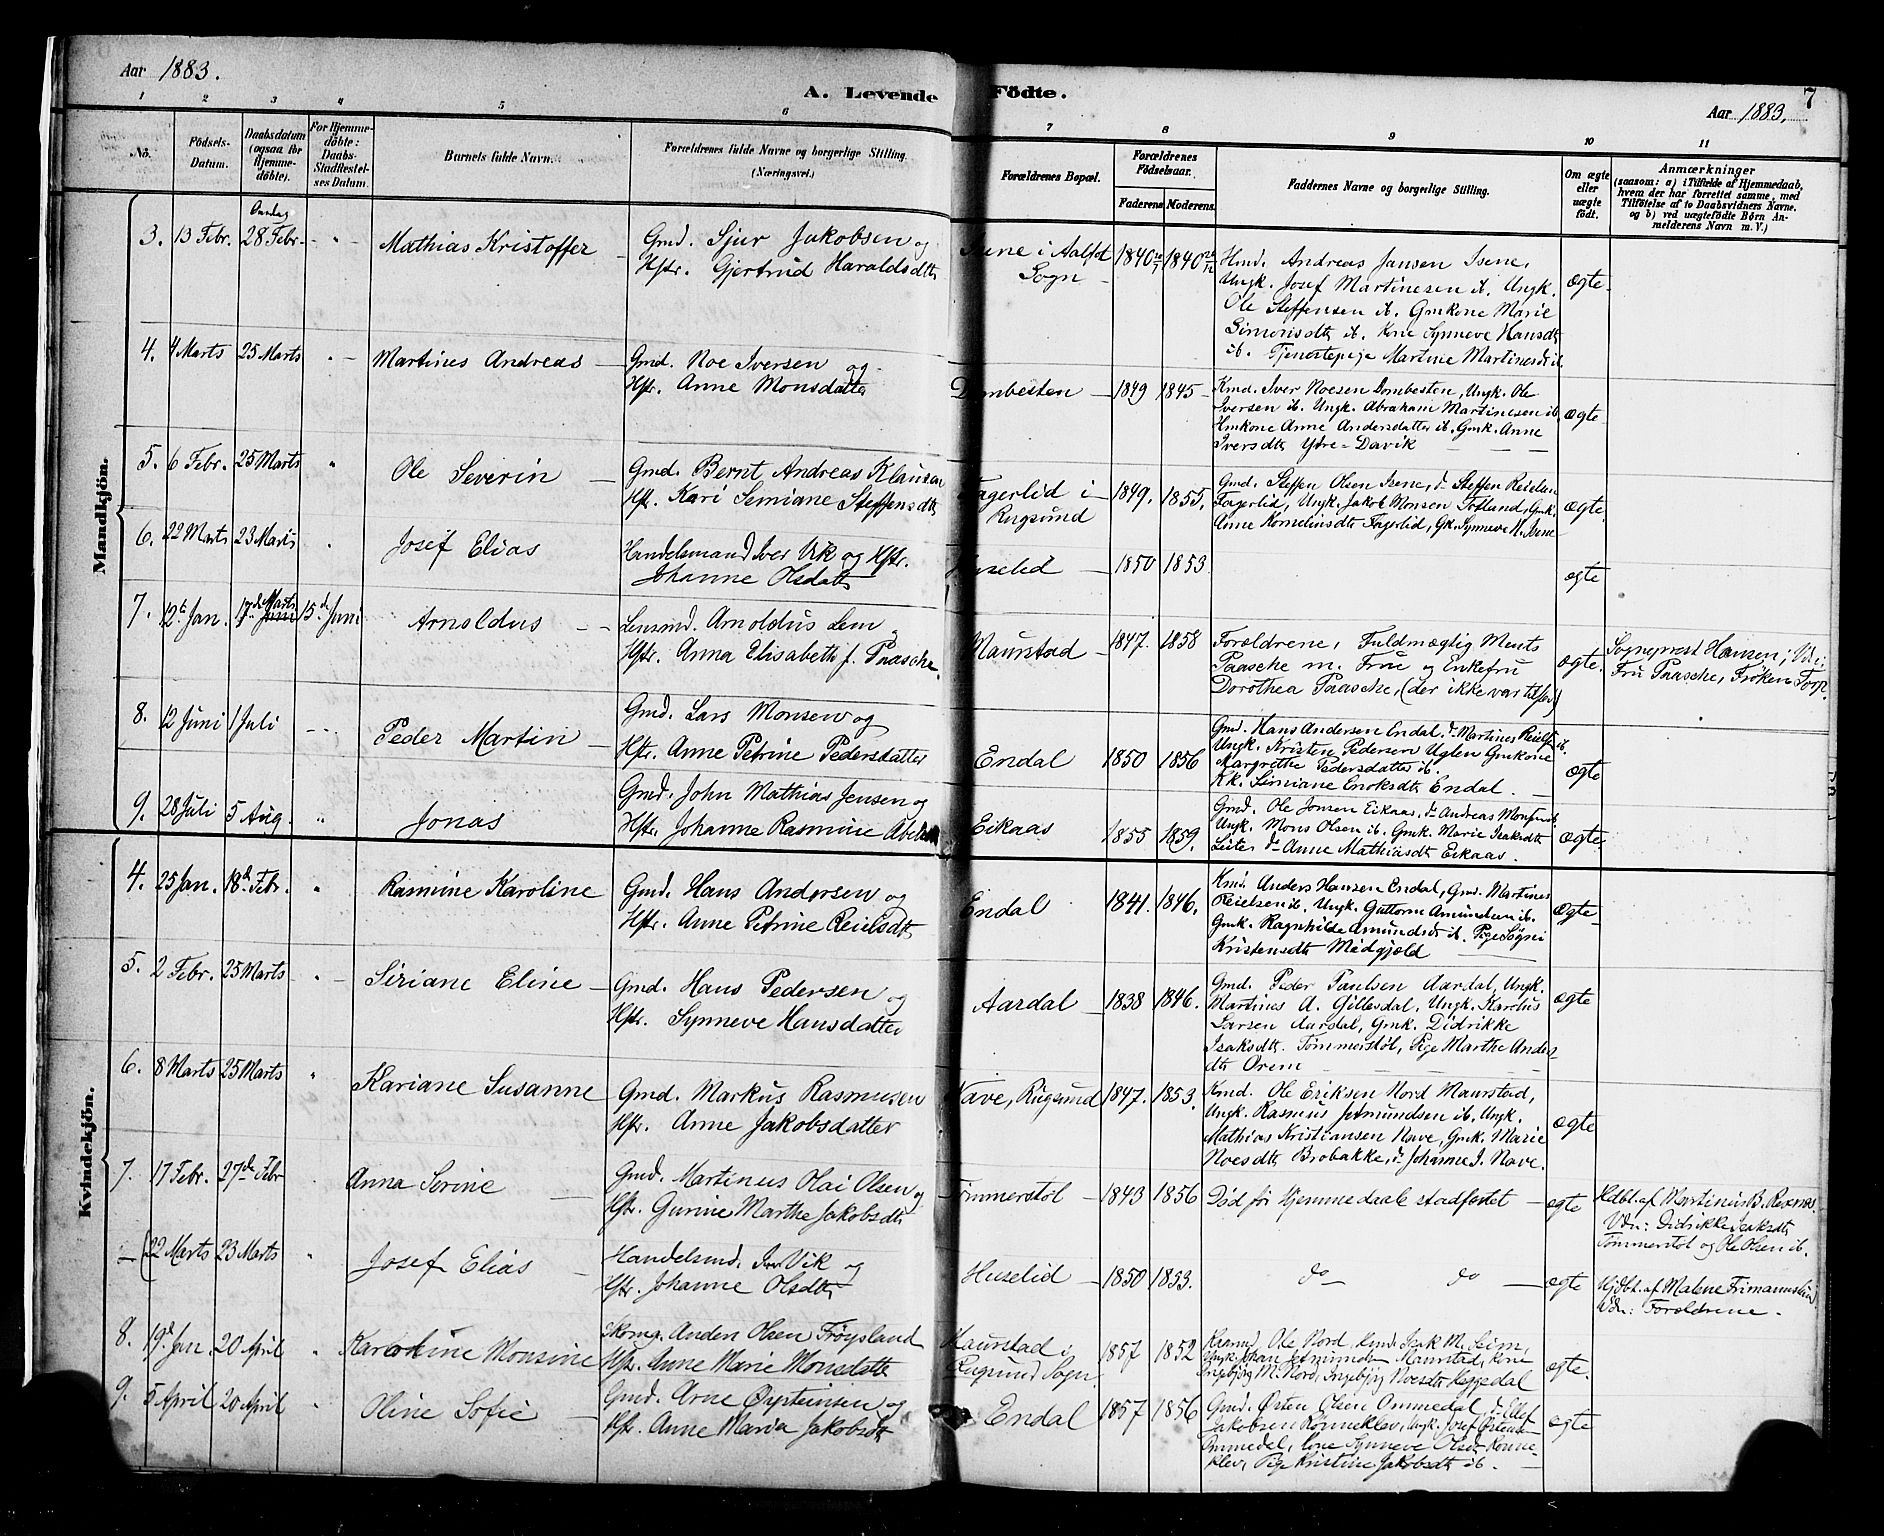 Aar 1883.
A. Levende Födte.
7
Aar 1883.
1 2 3 4 5 6 7 8 9 10 11
No.
Födsels-
Datum.
Daabsdatum
(ogsaa for
Hjemme-
döbte).
For Hjemme-
döbte:
Daabs-
Stadfæstel-
ses Datum.
Barnets fulde Navn.
Forældrenes fulde Navne og borgerlige Stilling.
(Næringsvei.)
Forældrenes Bopæl.
Forældrenes
Födselsaar.
Faderens. Moderens.
Faddernes Navne og borgerlige Stilling.
Om ægte
eller
uægte
födt.
Anmærkninger
(saasom: a) i Tilfælde af Hjemmedaab,
hvem der har forrettet samme, med
Tilföielse af to Daabsvidners Navne.
og b) ved uægtefödte Börn An-
melderens Navn m. V.)
Mandkjön.
Onsdag
3. 13 Febr. 28 Febr. - " - Mathias Kristoffer
Gmd. Sjur Jakobsen og
Hstr. Gjertrud Haraldsdtr
Isene i Aalfot
Sogn
1840 1840
Hmd. Andreas Jansen Isene,
Ungk. Josef Martinesen ib. Ungk.
Ole Steffensen ib. Gmkone Marie
Simonsdtr ib. Kone Synneve Hansdtr
ib. Tjenestepige Martine Martinesd ib.
ægte.
4. 4 Marts 25 Marts " - Martines Andreas
Gmd. Noe Iversen og
Hstr. Anne Monsdatter
Dombesten 1849 1845
Kmd. Iver Noesen Dombesten, Ungk. Ole
Iversen ib. Ungk. Abraham Martinesen ib.
Hmkone Anne Andersdatter ib. Gmk. Anne
Iversdtr Ytre-Davik
ægte
5. 6 Febr. 25 Marts " Ole Severin
Gmd. Bernt Andreas Klausen
Hst. Kari Semiane Steffensdtr
Fagerlid i
Rugsund
1849. 1855.
Gmd. Steffen Olsen Isene, do Steffen Reielsen
Fagerlid, Ungk. Jakob Monsen Totland, Gmk.
Anne Kornelinsdtr Fagerlid, Gk. Synneve M. Isene
ægte.
6. 22 Marts 23 Marts " Josef Elias
Handelsmand Iver Vik og Hstr.
Johanne Olsdatt
Huselid 1850 1853.
ægte
7. 12te Jan. 17de Marts Juni 15de Juni Arnoldus
Lensmd. Arnoldus Lem og
Hstr. Anna Elisabeth f. Paasche
Maurstad 1847. 1858
Forældrene, Fuldmægtig Ments
Paasche m. Fru og Enkefru
Dorothea Paasche, (der ikke var tilsted)
ægte.
Sogneprest Hansen; Vdn:
Fru Paasche, Frøken Torp.
8. 12 Juni 1 Juli - " - Peder Martin
Gmd. Lars Monsen og
Hstr. Anne Petrine Pedersdatter
Endal 1850 1856
Gmd. Hans Andersen Endal. do Martines Reielsen ib.
Ungk. Kristen Pedersen Uglen Gmkone
Margrethe Pedersdatter ib.
Kk. Simiane Enoksdtr Endal.
ægte
9. 28 Juli 5 Aug. " Jonas
Gmd. John Mathias Jensen og
Hstr. Johanne Rasmine
Eikaas 1855 1859.
Gmd. Ole Jonsen Eikaas, do Andreas Monsen ib.
Ungk. Mons Olsen ib. Gmk. Marie Isaksdtr
do Anne Mathiasdtr Eikaas.
ægte.
Kvindekjön.
4. 25 Jan. 18de Febr. " Rasmine Karoline
Gmd. Hans Andersen og
Hstr. Anne Petrine Reielsdtr
Endal 1841. 1846.
Kmd. Anders Hansen Endal, Gmd. Martines
Reielsen ib. Ungk. Guttorm Amundsen ib.
Gmk. Ragnhilde Amundsd ib. Pige Søgni
Kristensdtr Midgjeld
Ægte
5. 2 Febr. 25 Marts " Siriane Eline
Gmd. Hans Pedersen og
Hstr. Synneve Hansdatter
Aardal 1838 1846.
Gmd. Peder Paulsen Aardal, Ungk.
Martines A. Gillesdal, Ungk. Karelus
Larsen Aardal, Gmk. Didrikke
Isaksdtr. Tømmerstøl, Pige Marthe Anders-
dtr Orem
ægte
6. 8 Marts 25 Marts " Kariane Susanne
Gmd. Markus Rasmusen
Hstr. Anne Jakobsdatter
Nave, Rugsund 1847. 1853.
Kmd. Ole Eriksen Nord Maurstad,
Ungk. Rasmus Jetmundsen ib. Ungk.
Mathias Kristiansen Nave, Gmk. Marie
Noesdtr Brobakke, do Johanne J. Nave.
ægte
7. 17 Febr. 27de Febr " Anna Sorine
Gmd. Martinus Olai Olsen og
Hstr. Gurine Marthe Jakobsdtr
Tømmerstøl 1843 1856
Død før Hjemmedaab stadfæstet
ægte
Hdbt. af Martinus B. Revenæs.
Vdn.: Didrikke Isaksdtr
Tømmerstøl og Ole Olsen ib.
- (22 Marts 23 Marts " Josef Elias
Handelsmd. Iver Vik og
Hstr. Johanne Olsdtr
Huselid 1850 1853.
do do
ægte
Hjdbt. af Malene
Vdn: Forældrene.
8. 19de Jan. 20 April " Karoline Monsine
Skomg. Anders Olsen Frøysland
Hstr. Anne Marie Monsdatter
Maurstad i
Rugsund Sogn.
1857 1852
Kaarmd. Ole Nord, Gmd. Isak M. Seim,
Ungk. Johan Jetmundsen Maurstad, Kone
Ingebjørg M. Nord, Ingebjørg Noesdtr Heggedal
ægte.
9. 5 April 20 April " Oline Sofie
Gmd. Arne Øysteinsen og
Hstr. Anne Maria Jakobsdtr
Endal 1857 1856
Gmd. Østen Olsen Ommedal, do Ellef
Jakobsen Rønneklev, Ungk. Josef Østensen
Ommedal, Kone Synneve Olsdtr Rønne-
klev, Pige Kristine Jakobsdtr ib.
ægte